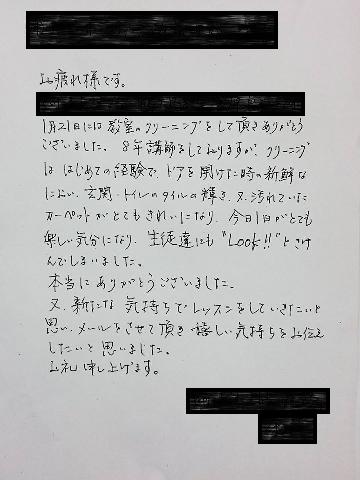 お疲れ様です。
1月21日には教室のクリーニングをして頂きありがとう
ございました。8年講師をしておりますが、クリーニング
は はじめての経験で、ドアを開けた時の新鮮な
におい、玄関・トイレのタイルの輝き、又、汚れていた
カーペットがとてもきれいになり、今日1日がとても
楽しい気分になり、生徒達にも "Look!!" とさけ
んでしまいました。
本当にありがとうございました。
又、新たな気持ちでレッスンをしていきたいと
思い、メールをさせて頂き 嬉しい気持ちをお伝え
したいと思いました。
お礼申し上げます。